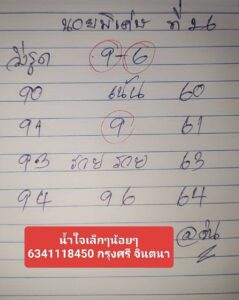 นอยพิเศษ ที่ 26
วิ่งรูด 9-6
90 เน้น 60
91 9 61
93 รวย รวย 63
94 96 64
น้ำใจเล็กๆน้อยๆ
6341118450 กรุงศรี จินตนา